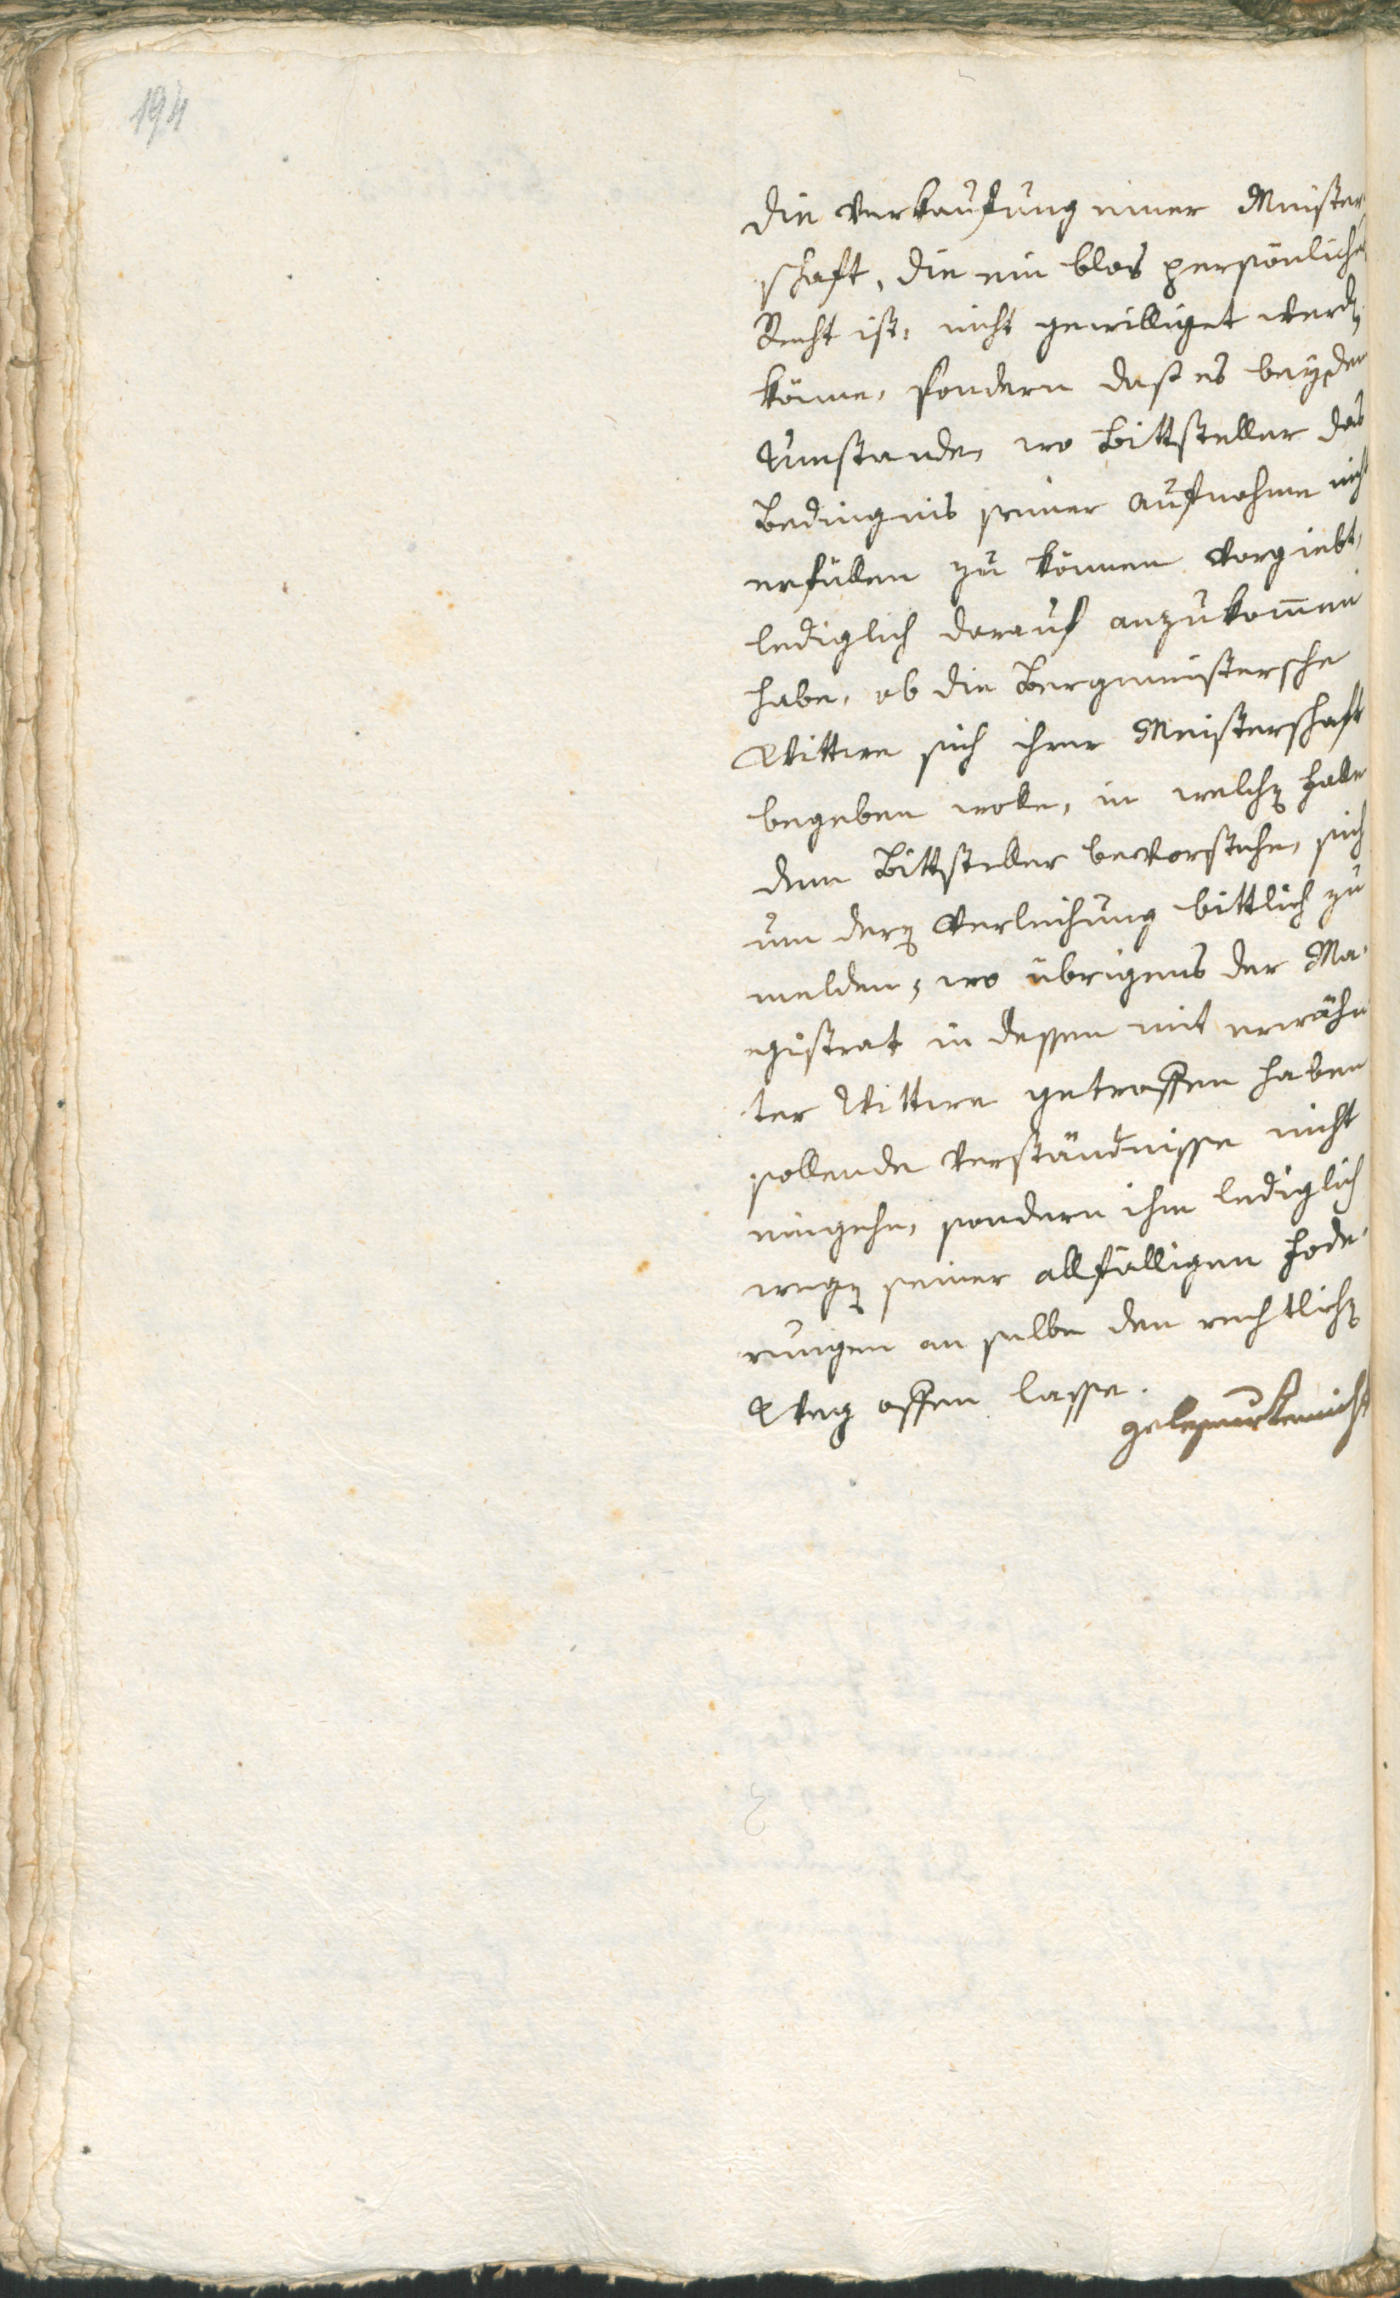 194
die Verkaufung einer Meister¬
schaft, die ein blos persönliches
Recht ist, nicht gewilliget werden
könne, sondern daß es bey dem
Umstande, wo Bittsteller das
Bedingnis seiner Aufnahme nicht
erfüllen zu können vorgiebt,
lediglich darauf anzukommen
habe, ob die Bergmeistersche
Wittwe sich ihrer Meisterschaft
begeben wolle, in welchen Falle
dem Bittsteller bevorstehe, sich
um deren Verleihung bittlich zu
melden, wo übrigens der Ma¬
gistrat in dessen mit erwähn¬
ter Wittwe getroffen haben
sollende Verständnisse nicht
eingehe, sondern ihm lediglich
wegen seiner allfälligen Fode¬
rungen an selbe den rechtlichen
Weg offen lasse.